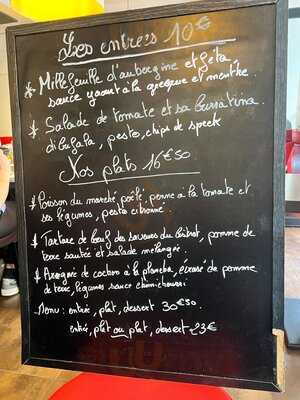 Les entrées 10€
* Millefeuille d'aubergine et feta,
sauce yaourt à la grecque et menthe.
* Salade de tomate et sa burratina
di bufala, pesto, chips de speck
Nos plats 16€50.
* Poisson du marché poêlé, pomme à la tomate et
ses légumes, pesto citronné.
* Tartare de bœuf des saveurs du bistrot, pomme de
terre sautée et salade mélangée.
* Araignée de cochon à la plancha, écrasé de pomme
de terre, légumes sauce chimichurri
Menu : entrée, plat, dessert 30€50.
entrée, plat ou plat, dessert 23€